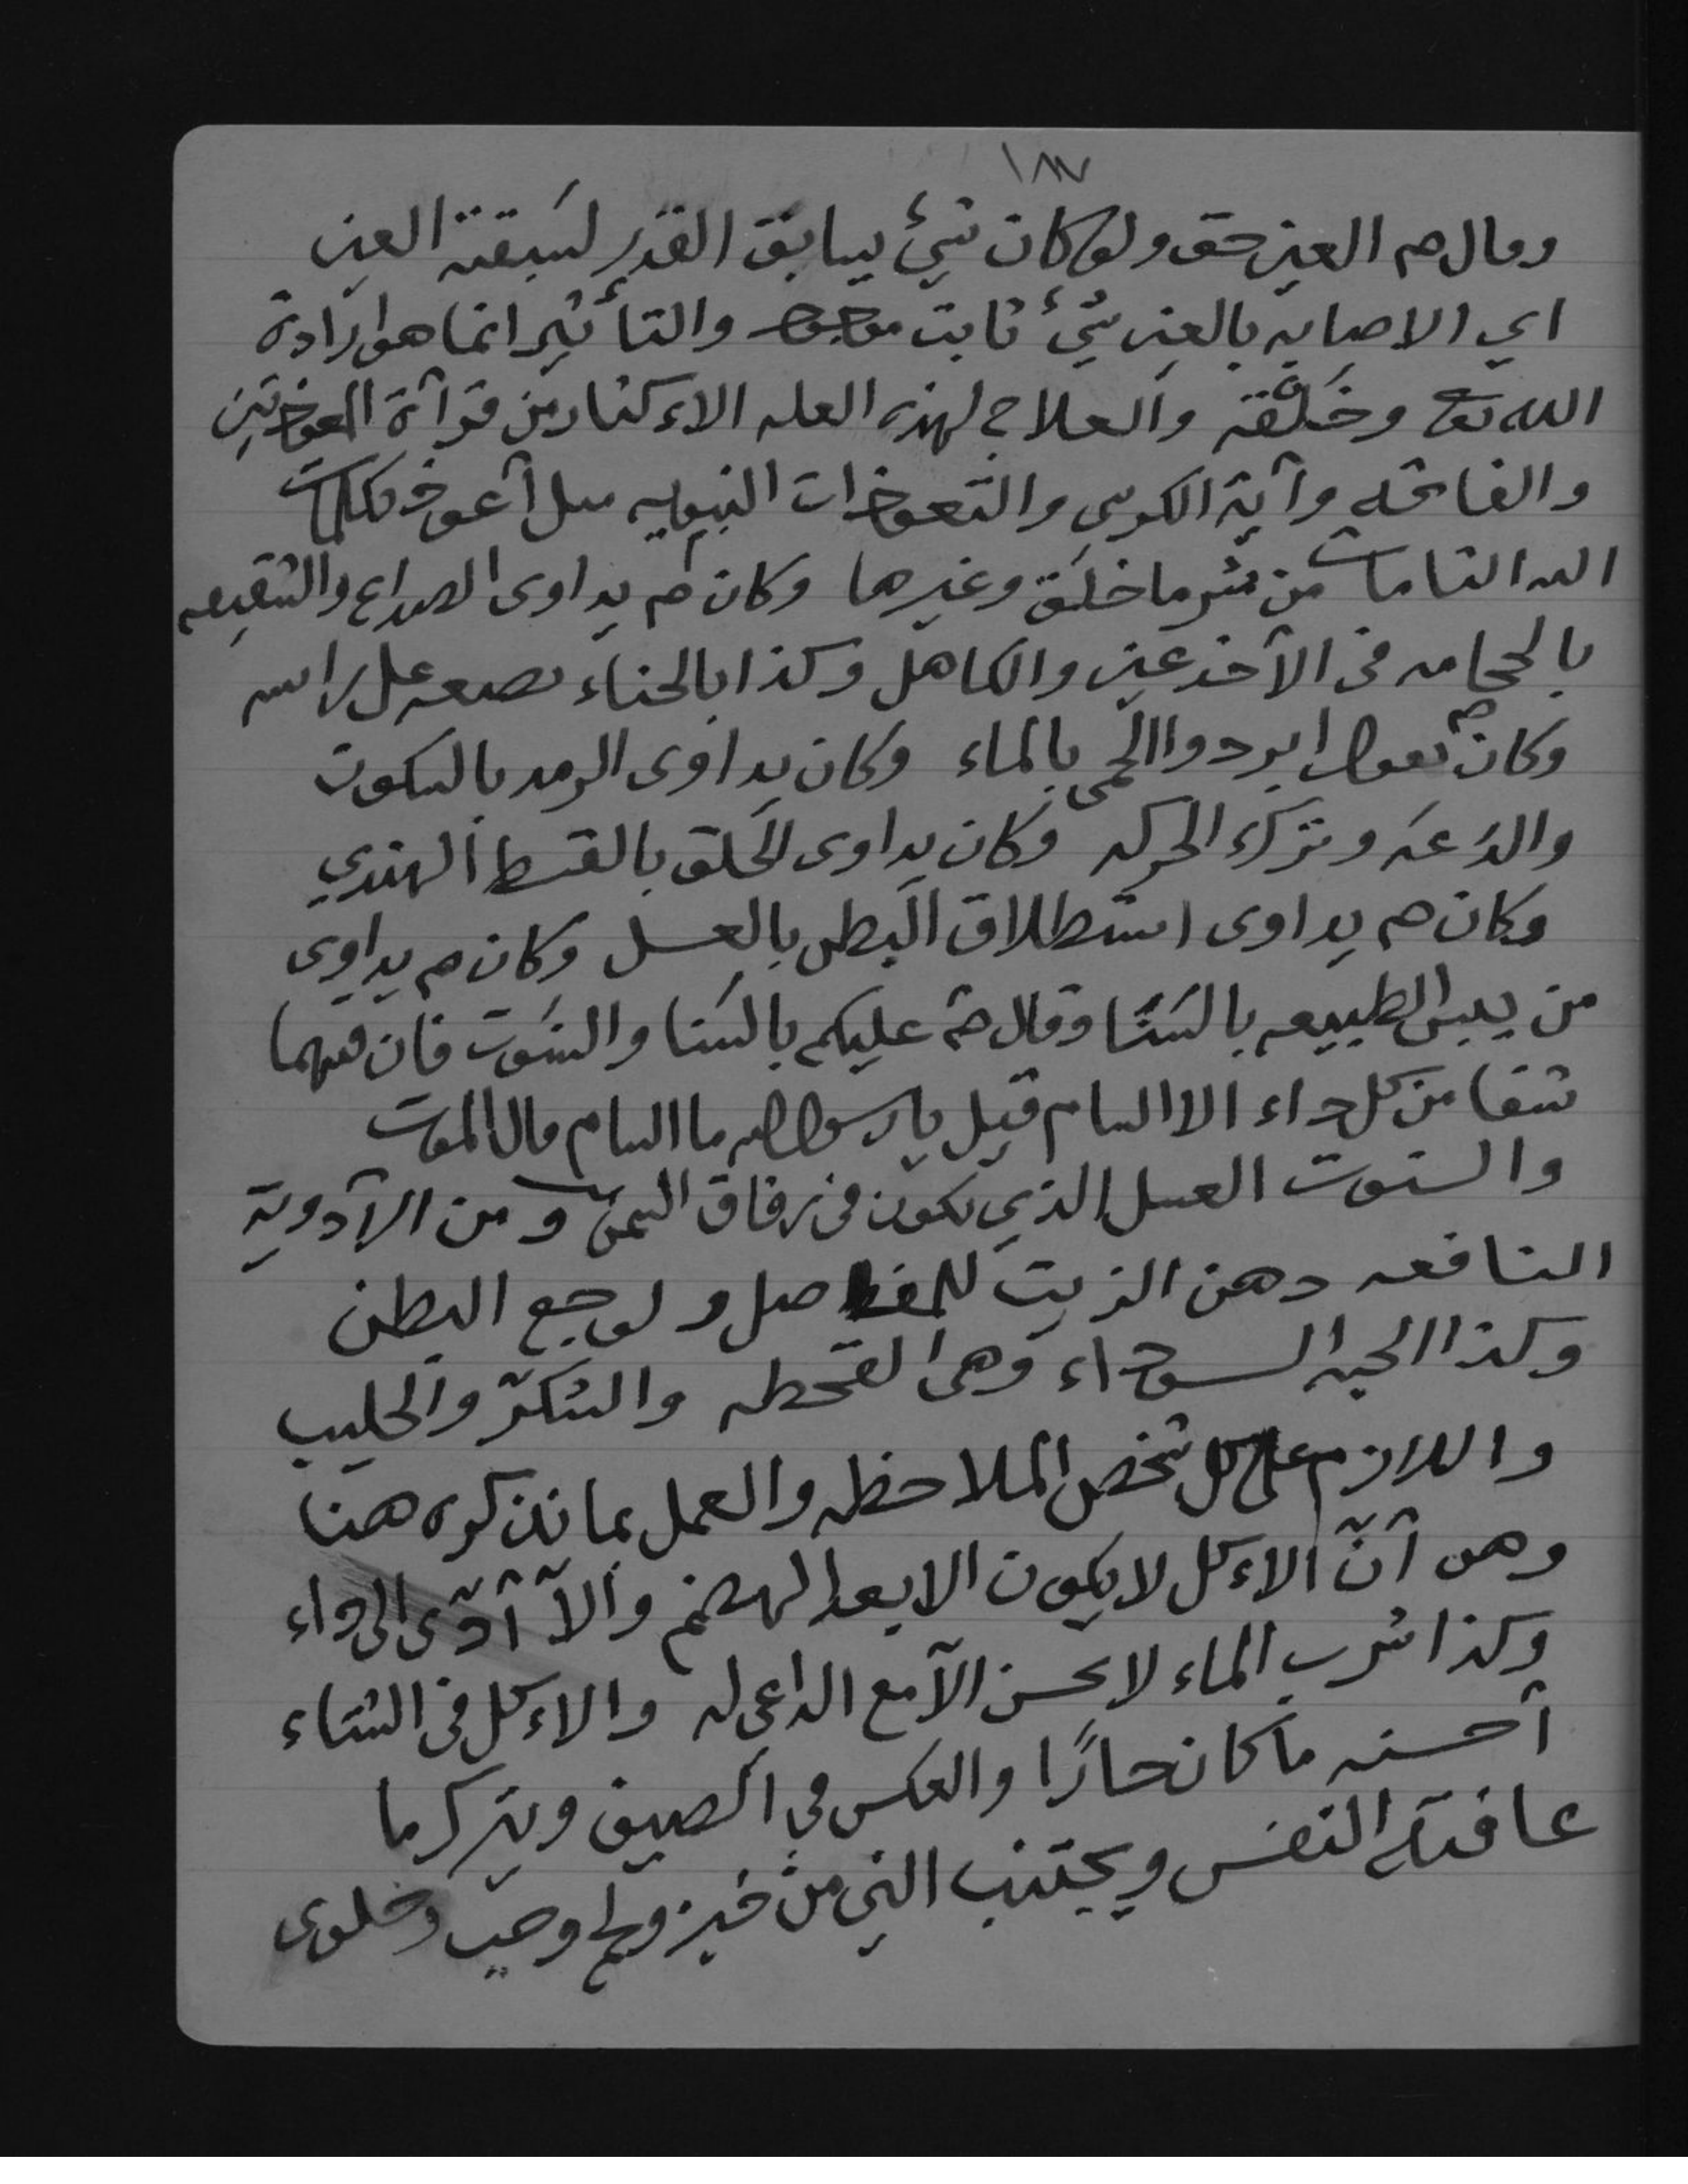 ١٨٧
وقال صم العين حق ولو كان شيئ يسابق القدر لسبقته العين
اي الاصابه بالعين شيئ ثابت موجود والتأثير انما هو إرادة
الله تع وخلقه والعلاج لهذه العله الاءكثار من قرآءة المعوذتين
والفاتحه وآية الكرسي والتعوذات النبويه مثل أعوذ بكلمات
الله التامات من شر ما خلق وغيرها وكان صم يداوى الصداع والشقيقه
بالحجامه فى الأخدعين والكاهل وكذا بالحناء يضعه على راسه
وكان صم يقول ابردوا الحمى بالماء وكان يداوى الرمد بالسكون
والدعه وترك الحركه وكان يداوى الحلق بالقسط الهندي
وكان صم يداوى استطلاق البطن بالعسل وكان صم يداوى
من يبس الطبيعه بالسنا وقال صم عليكم بالسنا والسنوت فان فيهما
شفا من كل داء الا السام قيل يا رسول الله ما السام قال الموت
والسنوت العسل الذي يكون فى زقاق السمن ومن الأدوية
النافعه دهن الزيت للمفاصل ولوجع البطن
وكذا الحبه السوداء وهى القحطه والسكر والحليب
واللازم على كل شخص الملاحظه والعمل بما نذكره هنا
وهو أنّ الاءكل لا يكون الا بعد الهضم وألاّ أدّى الى داء
وكذا شرب الماء لا يحسن الاّ مع الداعى له والاءكل فى الشتاء
أحسنه ما كان حارًا والعكس في الصيف ويترك ما
عافته النفس ويجتنب الني من خبز ولحم وحب وحلوى